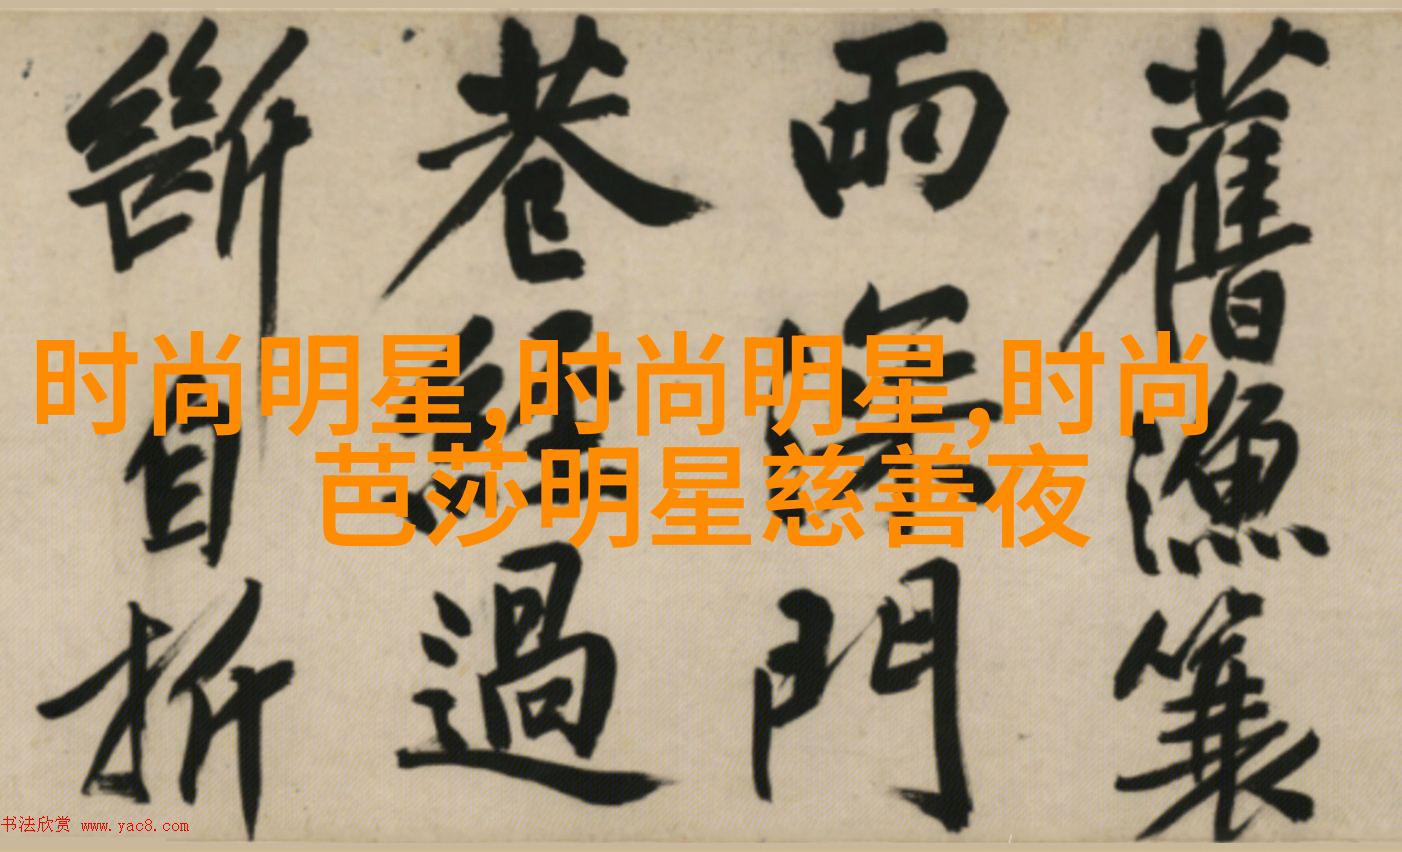 舊漁簑
雨深門
巷經過
斷自折
时尚明星,时尚明星,时尚
芭莎明星慈善夜
书法欣赏 www.yac8.com